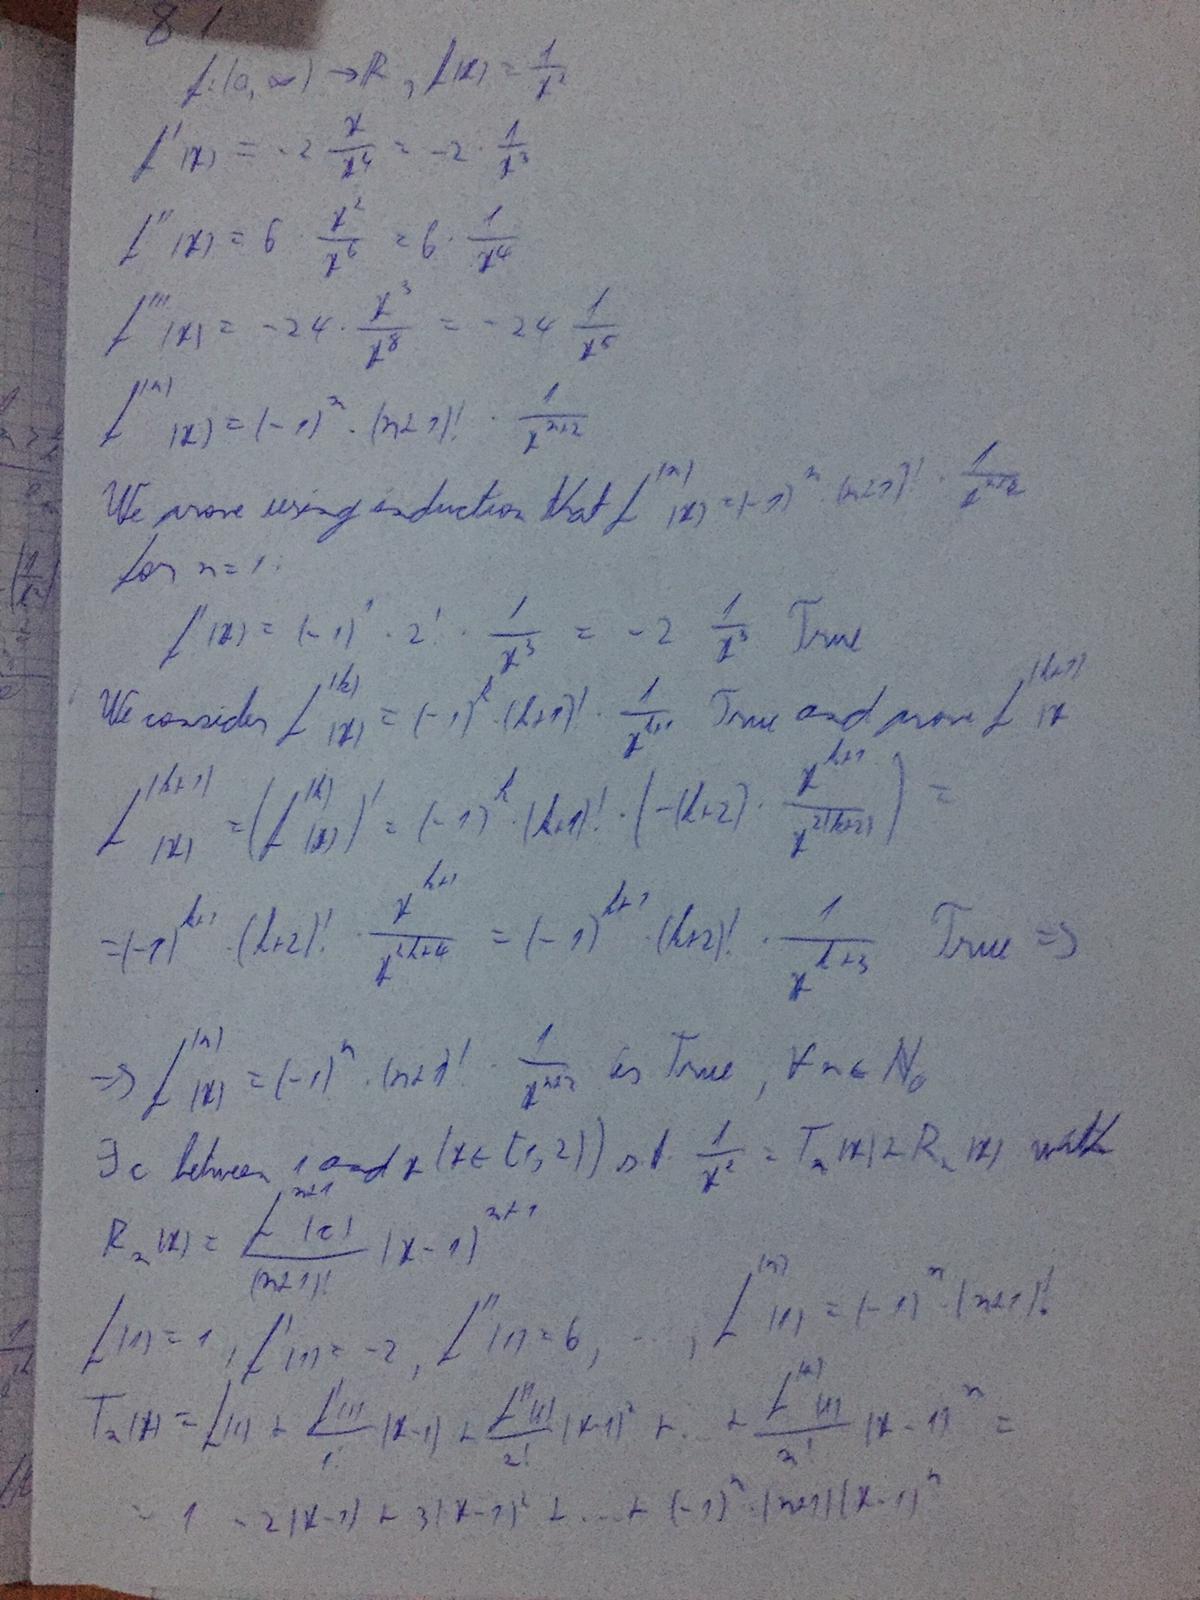 8 1
f:(0,∞) → R, f(x) = 1/x²
f'(x) = -2 x/x⁴ = -2 · 1/x³
f''(x) = 6 · x²/x⁶ = 6 · 1/x⁴
f'''(x) = -24 · x³/x⁸ = -24 1/x⁵
f⁽ⁿ⁾(x) = (-1)ⁿ · (n+1)! · 1/xⁿ⁺²
We prove using induction that f⁽ⁿ⁾(x) = (-1)ⁿ (n+1)! · 1/xⁿ⁺²
for n=1:
f'(x) = (-1)¹ · 2! · 1/x³ = -2 1/x³ True
We consider f⁽ᵏ⁾(x) = (-1)ᵏ · (k+1)! · 1/xᵏ⁺¹ True and prove f⁽ᵏ⁺¹⁾(x
f⁽ᵏ⁺¹⁾(x) = (f⁽ᵏ⁾(x))' = (-1)ᵏ · (k+1)! · (-(k+2) · xᵏ⁺¹/x²⁽ᵏ⁺²⁾) =
= (-1)ᵏ⁺¹ · (k+2)! · xᵏ⁺¹/x²ᵏ⁺⁴ = (-1)ᵏ⁺¹ · (k+2)! · 1/xᵏ⁺³ True =>
=> f⁽ⁿ⁾(x) = (-1)ⁿ · (n+1)! · 1/xⁿ⁺² is True, ∀n∈N₀
∃c between 1 and x (x∈[1,2)) s.t. 1/x² = Tₙ(x) + Rₙ(x) with
Rₙ(x) = fⁿ⁺¹(c)/(n+1)! (x-1)ⁿ⁺¹
f(1) = 1, f'(1) = -2, f''(1) = 6, ..., f⁽ⁿ⁾(1) = (-1)ⁿ · (n+1)!
Tₙ(x) = f(1) + f'(1)/1! (x-1) + f''(1)/2! (x-1)² + ... + f⁽ⁿ⁾(1)/n! (x-1)ⁿ =
= 1 - 2(x-1) + 3(x-1)² + ... + (-1)ⁿ · (n+1)(x-1)ⁿ